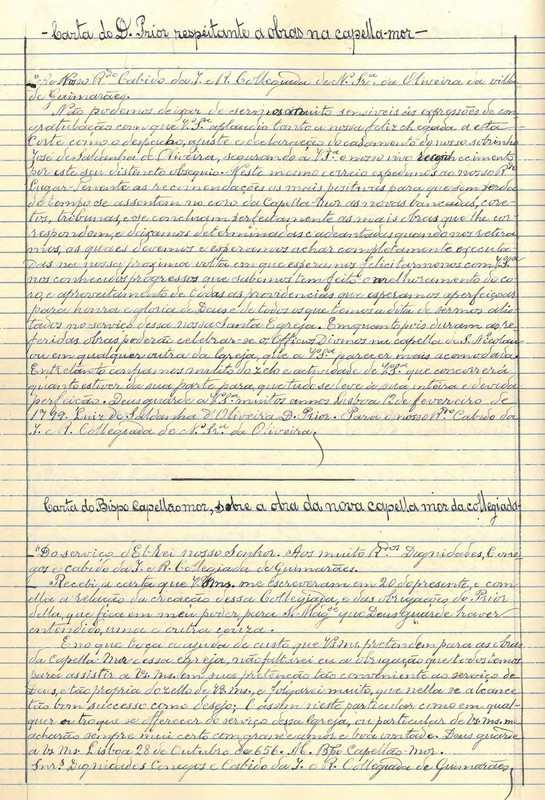 - Carta do D. Prior respeitante a obras na capella-mor -
"Ao Nosso R.do Cabido da I. e R. Collegiada de N.ª Snr.ª da Oliveira da villa
de Guimarães.
Não podemos deixar de ser mos muito sensiveis ás expressões de con
gratulação com que V.ª S.ª aplaudiu tanto a nossa feliz chegada a esta
Corte como o despacho, ajuste e declaração do casamento do nosso sobrinho
José de Saldanha de Oliveira, segurando a V.ª S.ª o nosso vivo reconhecimento
por este seu distincto obsequio. N'este mesmo correio expedimos ao nosso R.do
Lugar-Tenente as recomendações as mais positivas para que sem perda
de tempo se assentem no coro da Capella Mor as novas bancadas, core
tos, tribunas, e se concluam perfeitamente as mais obras que lhe cor
respondem, e deixamos determinadas e adeantadas quando nos retira
mos, as quaes devemos e esperamos achar completamente executa
das na nossa proxima volta em que esperamos felicitarmonos com V.ª S.ª
nos conhecidos progressos que sabemos tem feito o melhoramento do co
ro, e aproveitamento de todas as providencias que esperamos aperfeiçoar
para honra e gloria de Deus e de todos os que temos a dita de sermos alis
tados no serviço dessa nossa Santa Egreja. Emquanto pois duram as re
feridas obras poderão celebrar-se os Officios Divinos na capella de S. Nicolau
ou em qualquer outra da Igreja, que a V.ª S.ª parecer mais acomodada.
Entretanto confiamos muito do zelo e actividade de V.ª S.ª que concorrerá
quanto estiver da sua parte para, que tudo se leve á sua inteira e devida
perfeição. Deus guarde a V.ª S.ª muitos annos Lisboa 12 de fevereiro de
1799. Luiz de Saldanha d'Oliveira D. Prior. Para o nosso R.do Cabido da
I. e R. Collegiada de N.ª Snr.ª da Oliveira.
Carta do Bispo Capellão mor, sobre a obra da nova capella mor da collegiada-
"Do serviço d'El-Rei nosso Senhor. Aos muito R.dos Dignidades, Cone
gos e cabido da I. e R. Collegiada de Guimarães.
Recebi, a carta que V. Ms. me escreveram em 20 do presente, e com
ella a relação da creação dessa Collegiada, e das obrigações do Prior
della, que fica em meu poder, para S. Mag.de que Deus guarde haver
entendido, uma e outra coiza.
E no que toca a ajuda de custo que V. Ms. pretendem para as obras
da Capella-Mor dessa Egreja, não faltarei eu a obrigação que todos temos
para assistir a Vs. Ms. em sua pretenção tão conveniente ao serviço de
Deus, e tão propria do zello de Vs. Ms., e folgarei muito, que nella se alcance
tão bom successo como desejo; E assim neste particular como em qual
quer outro que se offerecer do serviço dessa Igreja, ou particular de Vs. Ms. me
acharão sempre mui certo com grande amor e boa vontade. Deus guarde
a Vs. Ms. Lisboa 28 de Outubro de 656. M. Bpo Capellão-Mor.
Snr.s Dignidades Conegos e Cabido da I. e R. Collegiada de Guimarães,